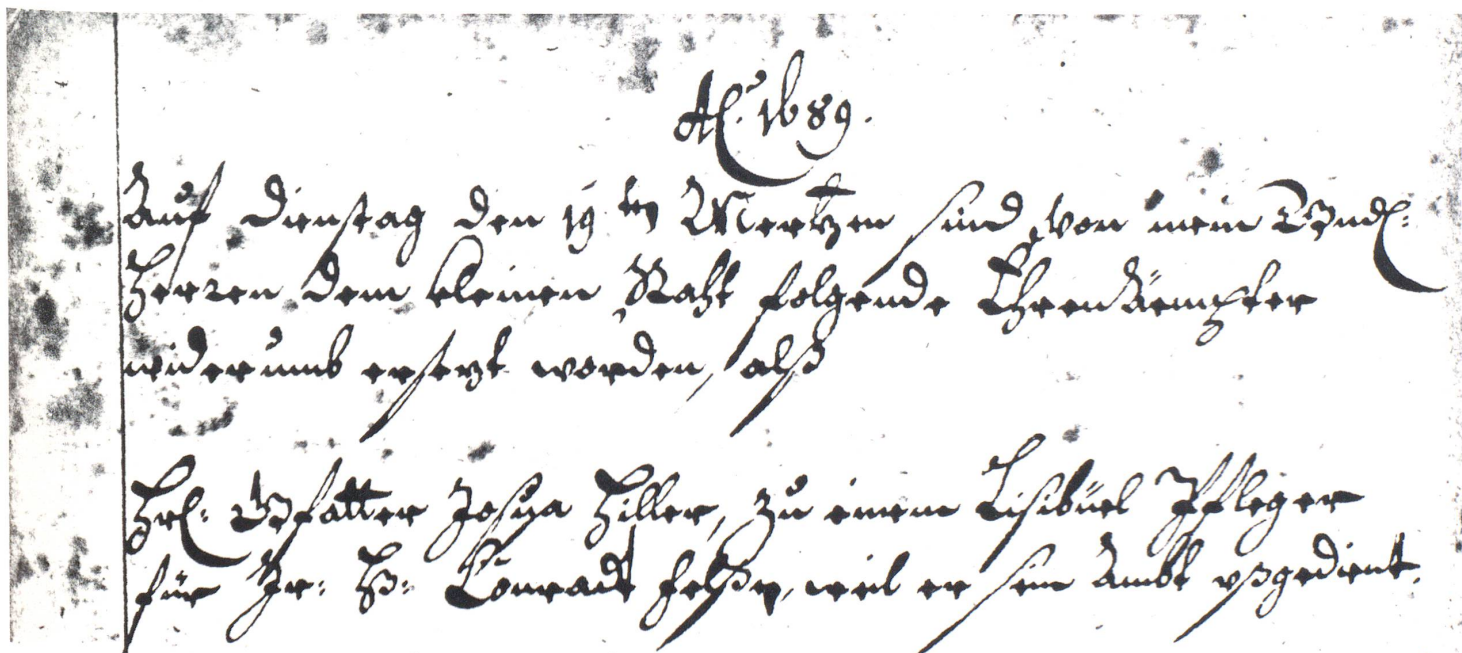 Aō. 1689.
Auf Dienstag den 19ten Mertzen sind von mein Gnd:
Herren dem kleinen Raht folgende Ehrenämpter
widerumb ersezt worden, alß
Hr: Gfatter Josua Hiller, zu einem Pfleger
für Jr: Hß: Conradt Felßen, weil er sein Ambt vßgedient.